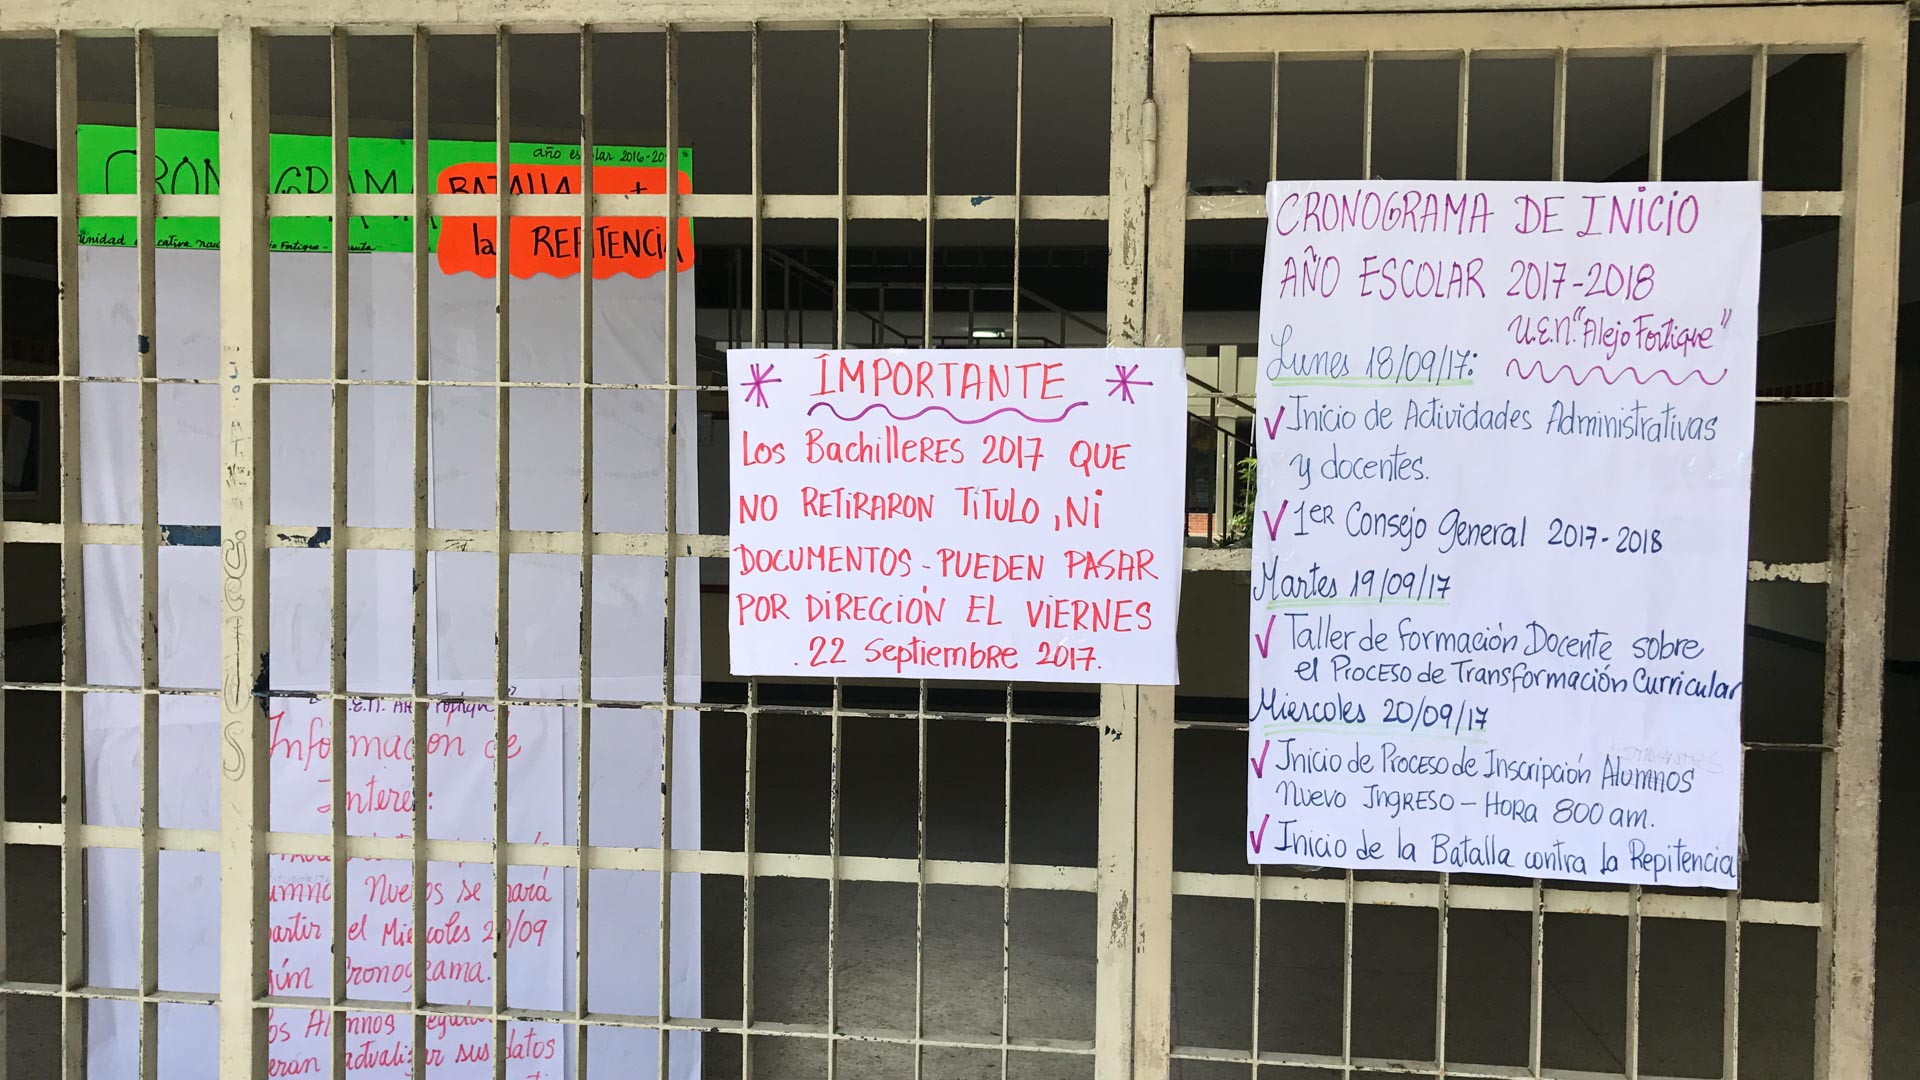 año escolar 2016-20
CRONOGRAMA
BATALLA +
la REPITENCIA
Información de
Interes:
Nuevos se hará
partir el Miercoles 20/09
Cronograma.
Alumnos
actualizar sus datos
* IMPORTANTE *
LOS BachillERES 2017 QUE
NO RETIRARON TÍTULO, Ni
DOCUMENTOS - PUEDEN PASAR
POR DIRECCIÓN EL VIERNES
. 22 Septiembre 2017.
CRONOGRAMA DE INICIO
AÑO ESCOLAR 2017-2018
U.E.N. "Alejo Fortique"
Lunes 18/09/17:
✓ Inicio de Actividades Administrativas
y docentes.
✓ 1ER Consejo General 2017-2018
Martes 19/09/17
✓ Taller de formación Docente sobre
el Proceso de Transformación Curricular
Miercoles 20/09/17
✓ Inicio de Proceso de Inscripción Alumnos
Nuevo Ingreso - Hora 800 am.
✓ Inicio de la Batalla contra la Repitencia